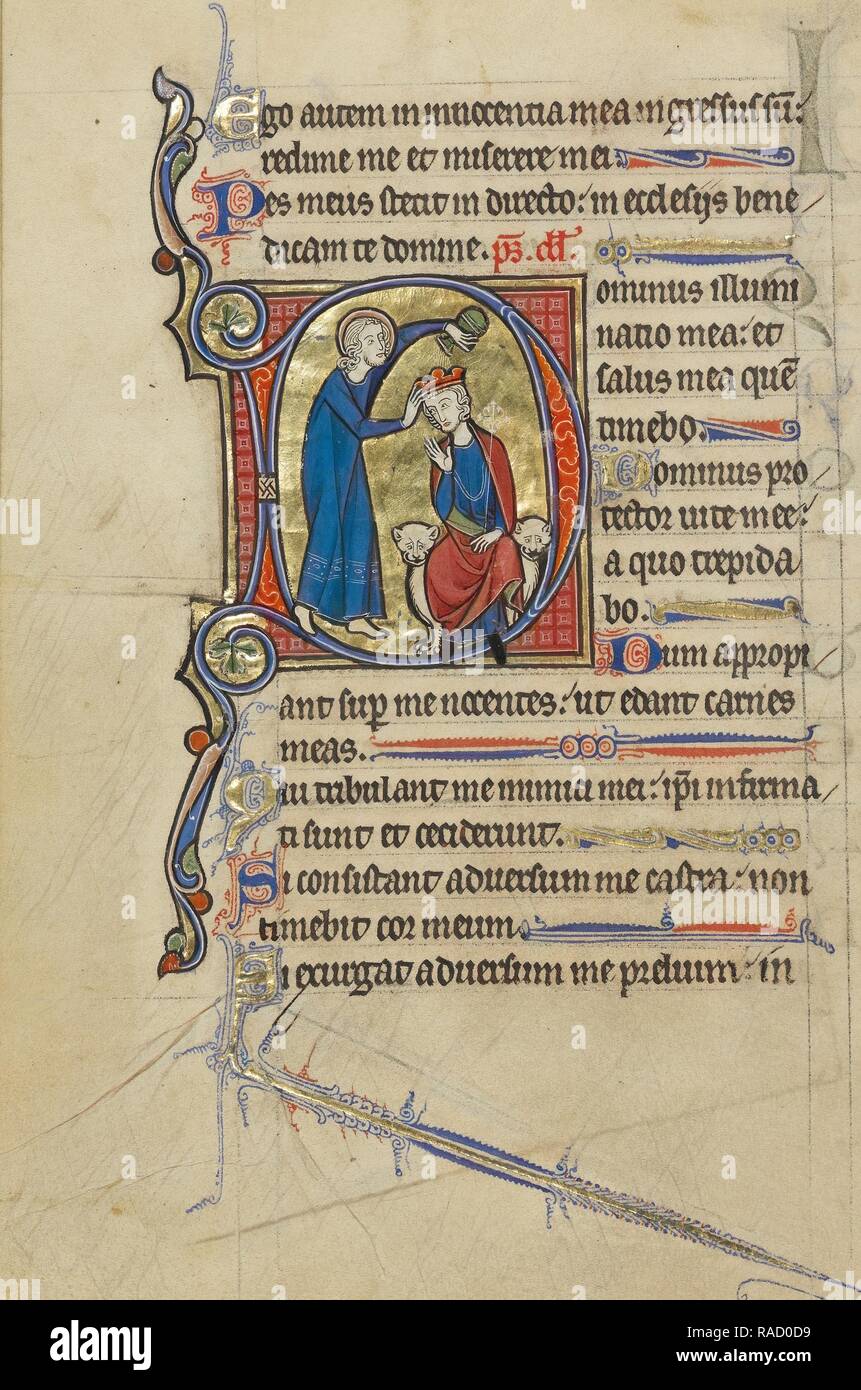 Ego autem in innocentia mea ingressus sū:
redime me et miserere mei.
Pes meus stetit in directo: in ecclesijs bene
dicam te domine. ps. dd.
Dominus illumi
natio mea: et
salus mea quē
timebo.
Dominus pro
tector uite mee:
a quo trepida
bo.
Dum appropi
ant sup me nocentes: ut edant carnes
meas.
Qui tribulant me inimici mei: ipi infirma
ti sunt et ceciderunt.
Si consistant aduersum me castra: non
timebit cor meum.
Si exurgat aduersum me prelium: in
alamy
Image ID: RAD0D9
www.alamy.com